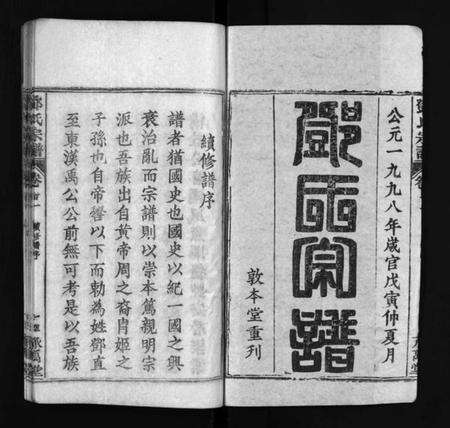 公元一九九八年歲官戊寅仲夏月
鄧氏宗譜
敦本堂重列
續修譜序
譜者猶國史也國史以紀一國之興
衰治亂而宗譜則以崇本篤親明宗
派也吾族出自黃帝周之裔曺姬之
子孫也自帝嚳以下而勅為姓鄧直
至東漢禹公公前無可考是以吾族
鄧氏宗譜
卷首
續修譜序